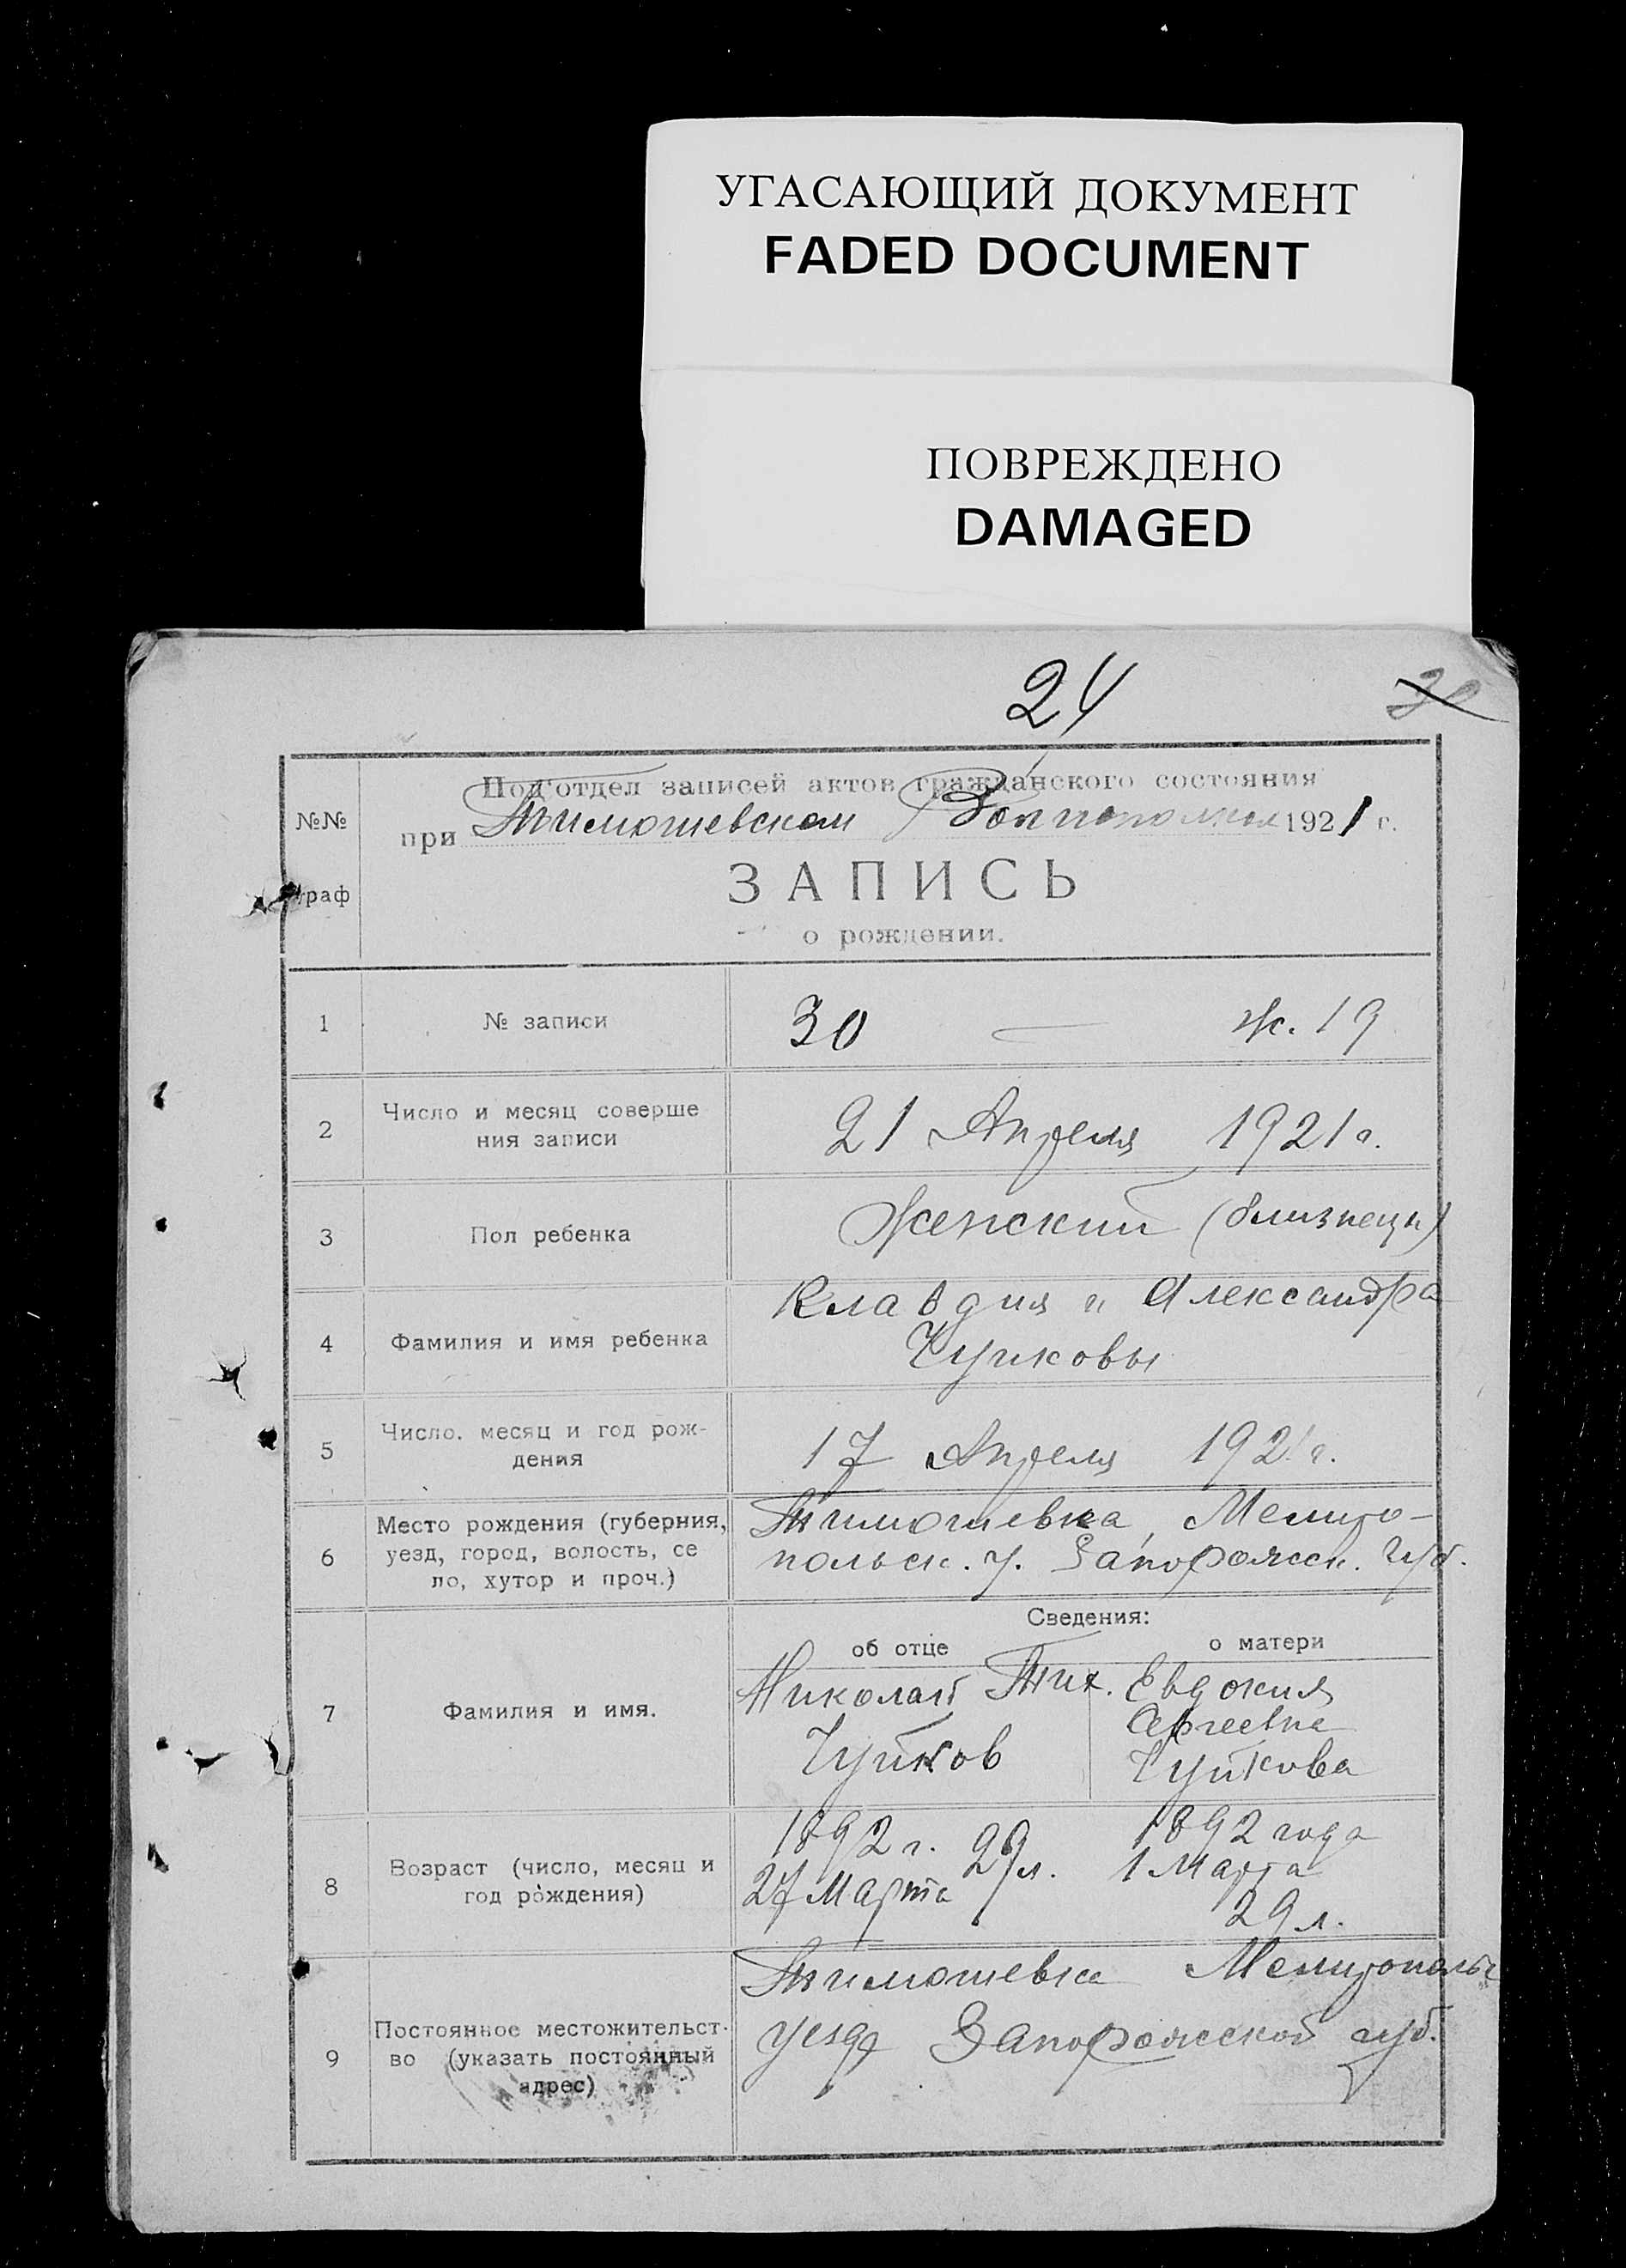 УГАСАЮЩИЙ ДОКУМЕНТ
FADED DOCUMENT
ПОВРЕЖДЕНО
DAMAGED
24
30
№№
граф
Под'отдел записей актов гражданского состояния
при Тимошевском Волисполкоме 1921 г.
ЗАПИСЬ
о рождении.
1
№ записи
30 — ж. 19
2
Число и месяц соверше
ния записи
21 Апреля 1921 г.
3
Пол ребенка
Женский (близнецы)
4
Фамилия и имя ребенка
Клавдия и Александра
Чуйковы
5
Число. месяц и год рож-
дения
17 Апреля 1921 г.
6
Место рождения (губерния,
уезд, город, волость, се
ло, хутор и проч.)
Тимошевка, Мелито-
польск. у. Запорожск. губ.
Сведения:
об отце
о матери
7
Фамилия и имя.
Николай Тих.
Чуйков
Евдокия
Сергеевна
Чуйкова
8
Возраст (число, месяц и
год рождения)
1892 г. 29 л.
27 Марта
1892 года
1 Марта
29 л.
9
Постоянное местожительст-
во (указать постоянный
адрес)
Тимошевка Мелитопольс
уезда Запорожской губ.